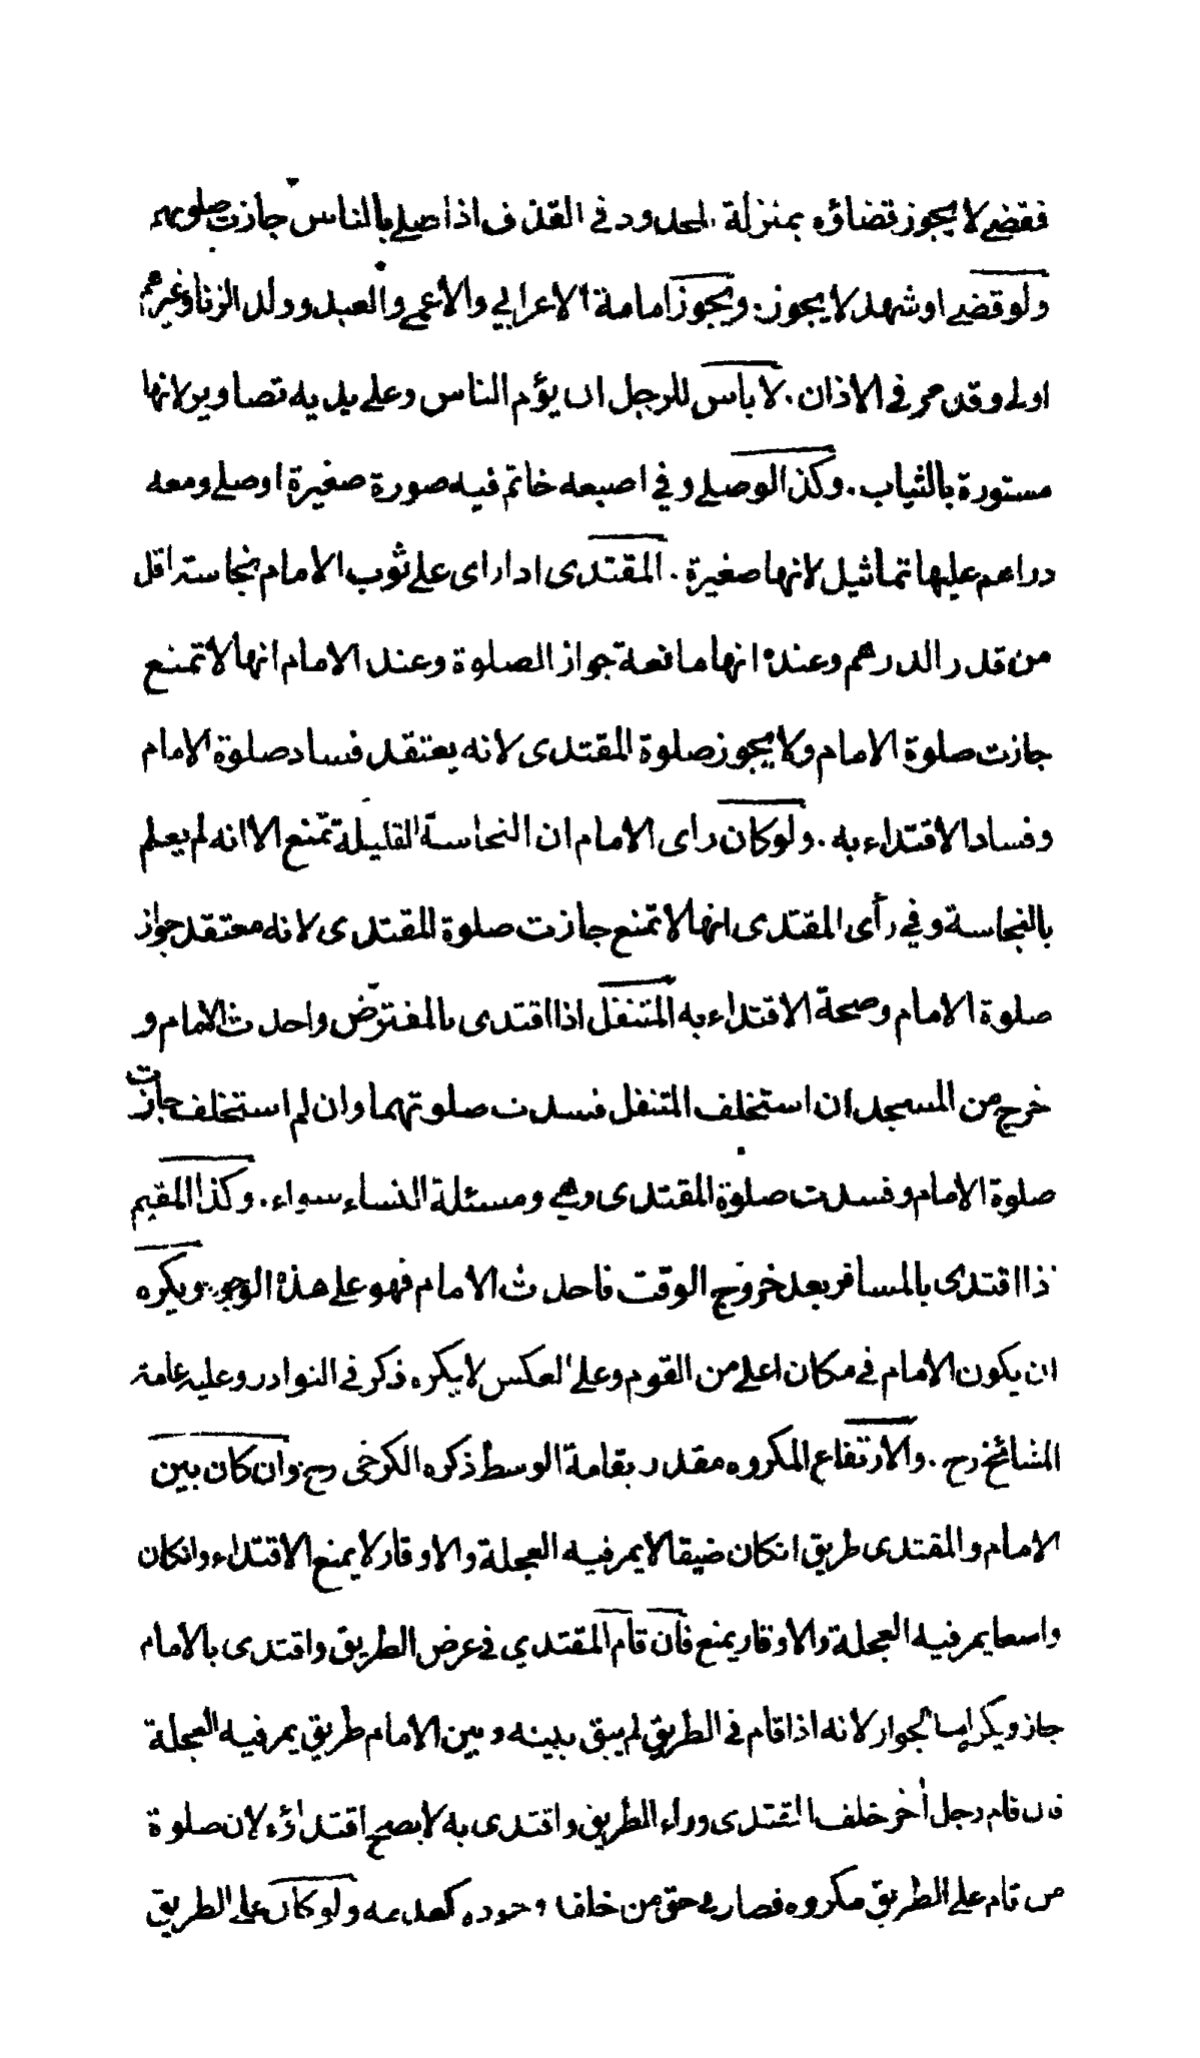 فقضى لا يجوز قضاؤه بمنزلة المحدود في القذف اذا صلى بالناس جازت صلوتهم
ولو قضى او شهد لا يجوز. ويجوز امامة الاعرابي والاعمى والعبد وولد الزنا وغيرهم
اولى وقد مر في الاذان. لا بأس للرجل ان يؤم الناس وعلى يديه تصاوير لانها
مستورة بالثياب. وكذا لو صلى وفي اصبعه خاتم فيه صورة صغيرة او صلى ومعه
دراهم عليها تماثيل لانها صغيرة. المقتدى اذا راى على ثوب الامام نجاسته اقل
من قدر الدرهم وعنده انها مانعة جواز الصلوة وعند الامام انها لا تمنع
جازت صلوة الامام ولا يجوز صلوة المقتدى لانه يعتقد فساد صلوة الامام
وفساد الاقتداء به. ولو كان راى الامام ان النجاسة القليلة تمنع الا انه لم يعلم
بالنجاسة وفي رأى المقتدى انها لا تمنع جازت صلوة المقتدى لانه معتقد جواز
صلوة الامام وصحة الاقتداء به المتنفل اذا اقتدى بالمفترض واحدث الامام و
خرج من المسجد ان استخلف المتنفل فسدت صلوتهما وان لم استخلف جازت
صلوة الامام وفسدت صلوة المقتدى وهي ومسئلة النساء سواء. وكذا المقيم
ذا اقتدى بالمسافر بعد خروج الوقت فاحدث الامام فهو على هذه الوجوه ويكره
ان يكون الامام في مكان اعلى من القوم وعلى العكس لا يكره ذكر في النوادر وعليه عامة
المشائخ رح. والارتفاع المكروه مقدر بقامة الوسط ذكره الكرخي رح وان كان بين
الامام والمقتدى طريق انكان ضيقا لا يمر فيه العجلة والاوقار لا يمنع الاقتداء وانكان
واسعا يمر فيه العجلة والاوقار يمنع فان قام المقتدي في عرض الطريق واقتدى بالامام
جاز ويكره لانه اذا قام في الطريق لم يبق بينه وبين الامام طريق يمر فيه العجلة
فان قام رجل أخر خلف المقتدى وراء الطريق واقتدى به لا يصح اقتداؤه لان صلوة
من قام على الطريق مكروه فصار في حق من خلفه وجوده كعدمه ولو كان على الطريق